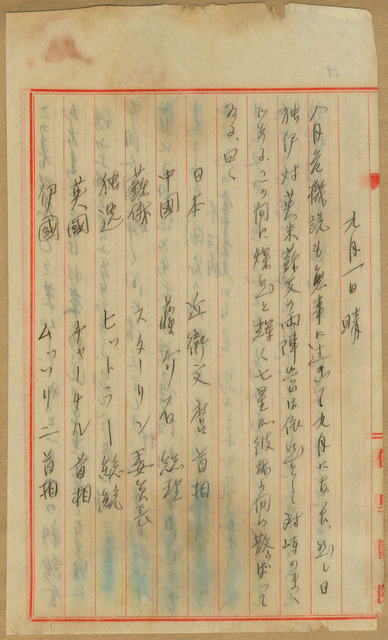 九月一日 晴
八月危機説も無事に過ぎて九月になった。然し日
独伊対英米蘇支の両陣営は依然として対峙のまゝ
である。この間に燦然と輝く七星が彼我の間に散らばって
ゐる。曰く
日本 近衛文麿 首相
中國 蒋介石 総理
蘇俄 スターリン 委員長
独逸 ヒットラー 総統
英國 チャーチル 首相
伊國 ムッソリーニ 首相